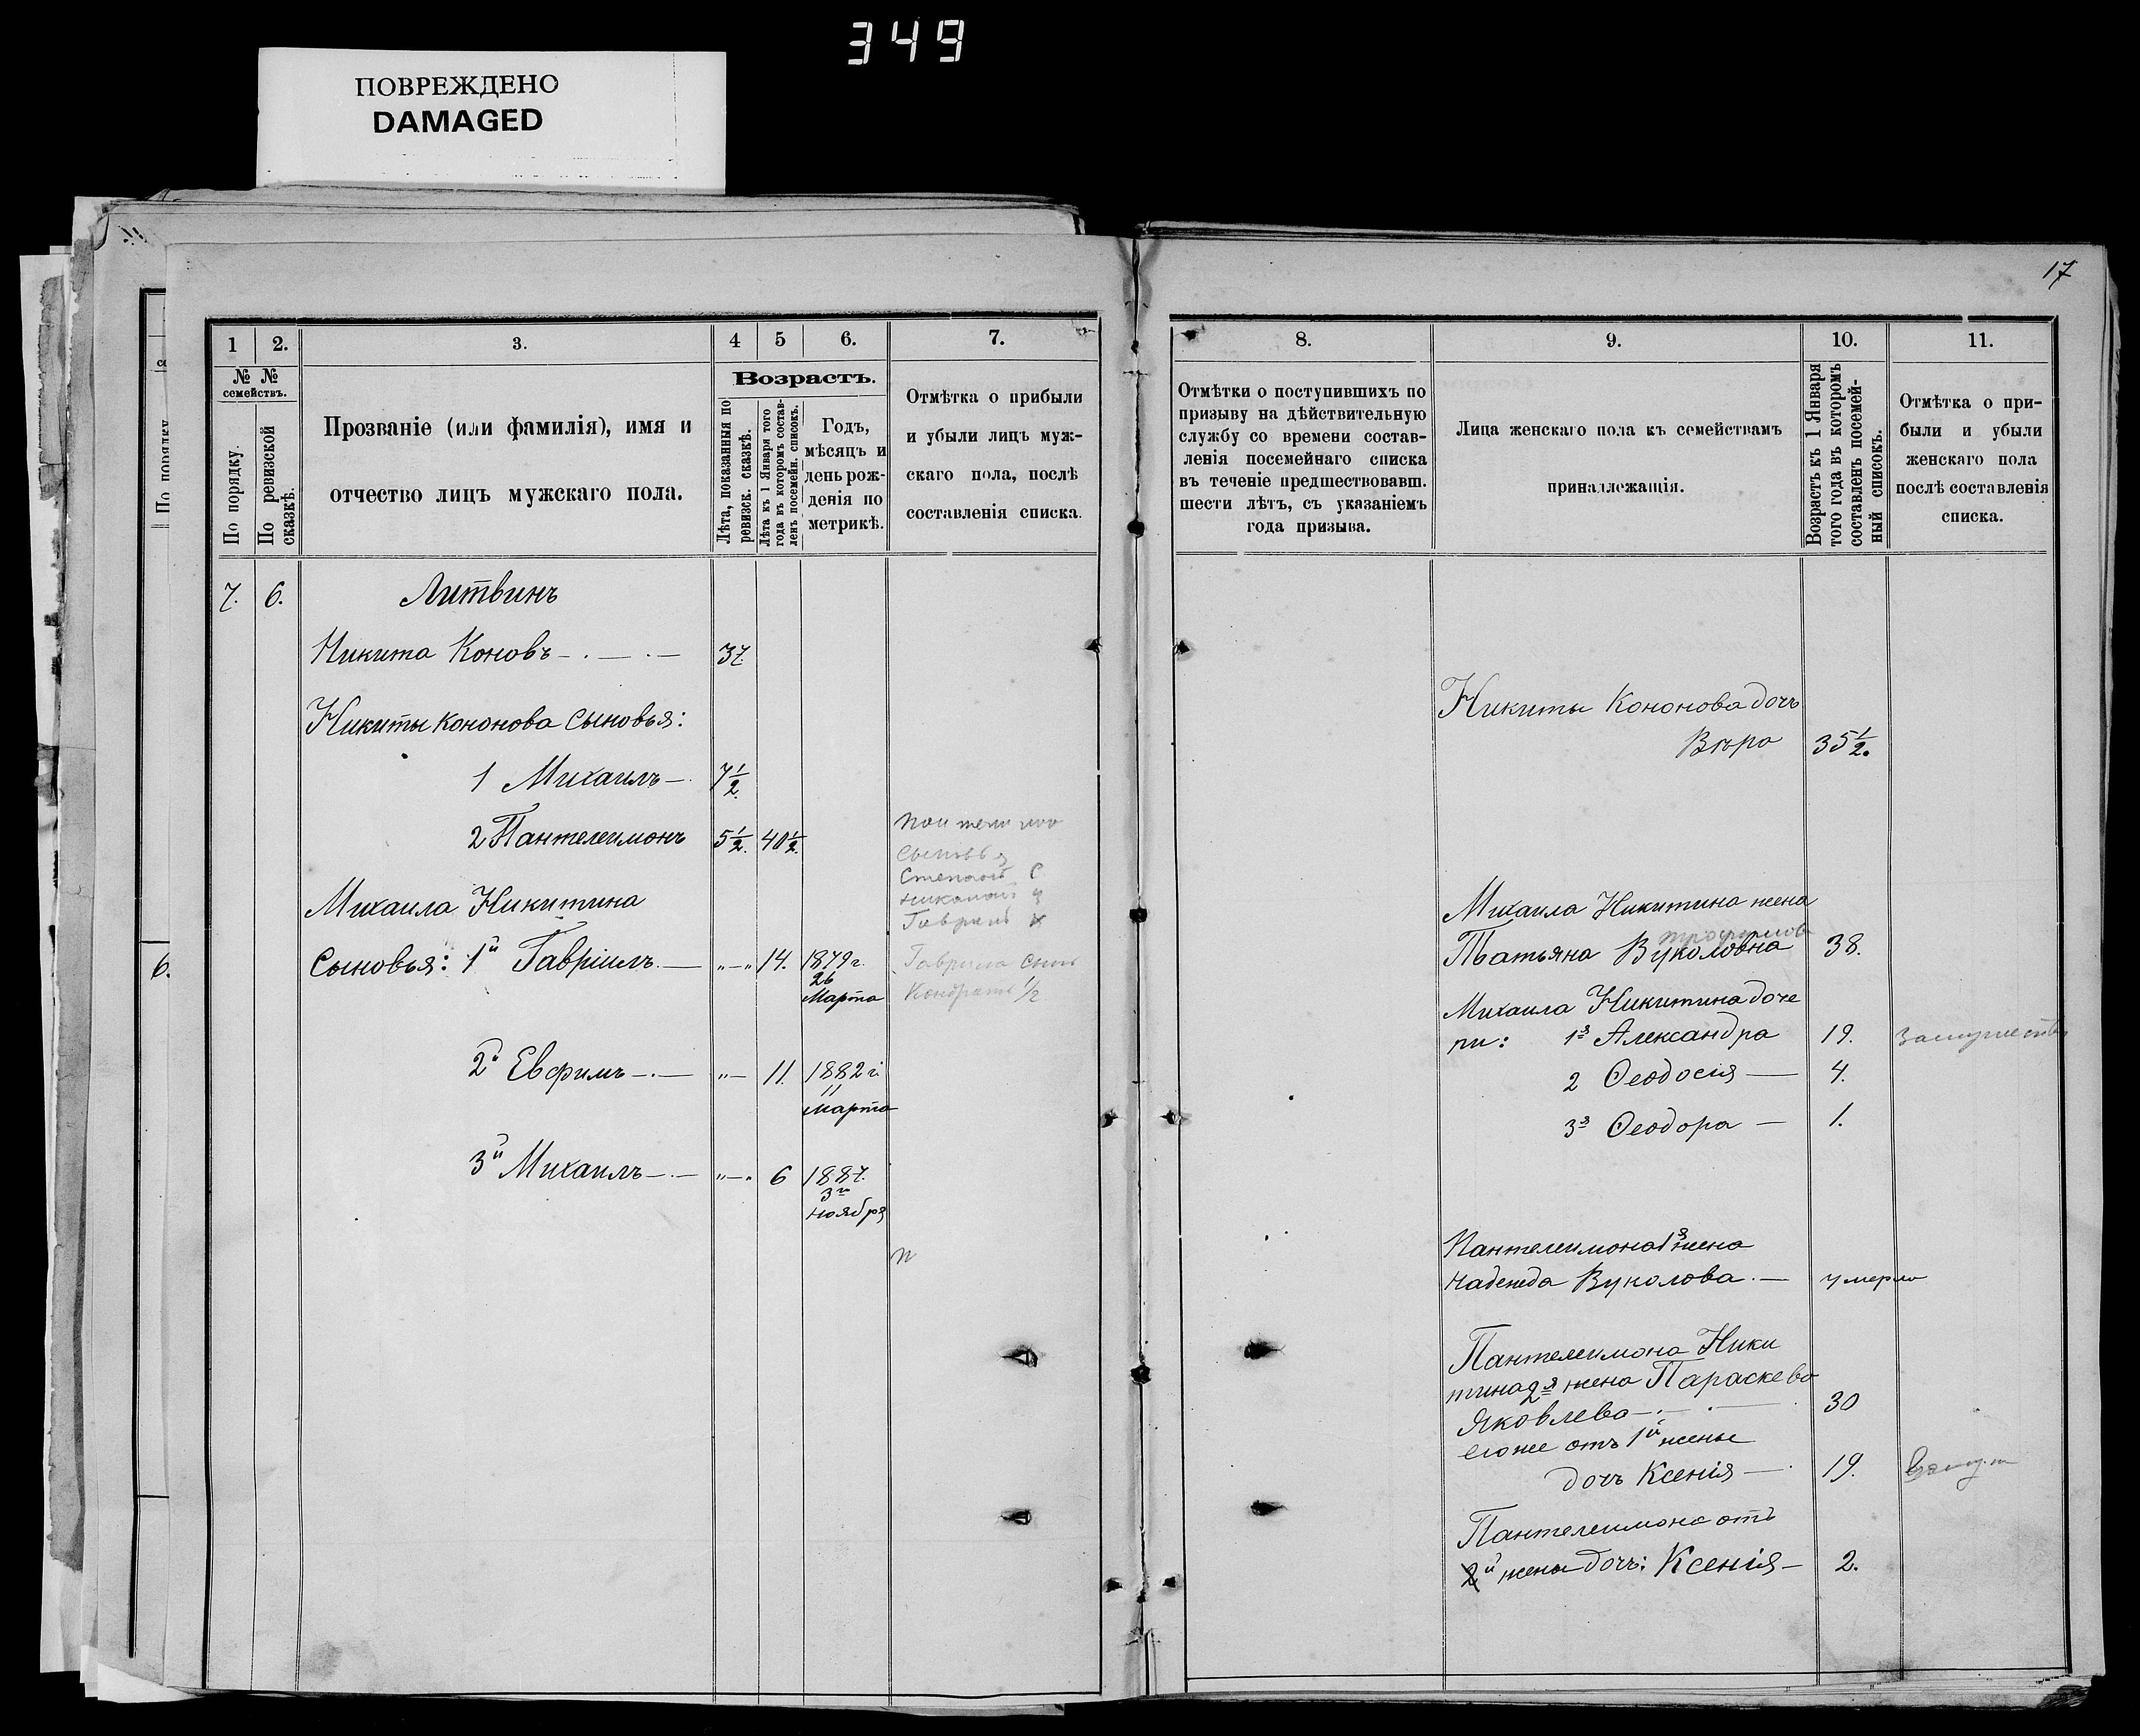 349
ПОВРЕЖДЕНО
DAMAGED
17
1
2.
3.
4
5
6.
7.
№ №
семействъ.
По порядку.
По ревизской
сказкѣ.
Прозваніе (или фамилія), имя и
отчество лицъ мужскаго пола.
Возрастъ.
Лѣта, показанныя по
ревизск. сказкѣ.
Лѣта къ 1 Января того
года въ которомъ состав-
ленъ посемейн. списокъ.
Годъ,
мѣсяцъ и
день рож-
денія по
метрикѣ.
Отмѣтка о прибыли
и убыли лицъ муж-
скаго пола, послѣ
составленія списка.
7. 6. Литвинъ
Никита Коновъ 37
Никиты Кононова сыновья:
1 Михаилъ 7 1/2.
2 Пантелеимонъ 5 1/2. 40 1/2.
сыновья
Степанъ
Николай
Гаврилъ
Михаила Никитина
Сыновья: 1й Гавріилъ „—„ 14. 1879 г.
26
Марта
Гаврила сынъ
Кондратъ 1/2
2й Евфимъ „— 11. 1882 г.
11
Марта
3й Михаилъ „—„ 6 1887.
3го
ноября
п
8.
9.
10.
11.
Отмѣтки о поступившихъ по
призыву на дѣйствительную
службу со времени состав-
ленія посемейнаго списка
въ теченіе предшествовавш.
шести лѣтъ, съ указаніемъ
года призыва.
Лица женскаго пола къ семействамъ
принадлежащія.
Возрастъ къ 1 Января
того года въ которомъ
составленъ посемей-
ный списокъ.
Отмѣтка о при-
были и убыли
женскаго пола
послѣ составленія
списка.
Никиты Кононова дочь
Вѣра 35 1/2.
Михаила Никитина жена
Татьяна Вуколовна 38.
Михаила Никитина доче
ри: 1я Александра 19. Замужество
2 Ѳеодосія 4.
3я Ѳеодора 1.
Пантелеимона 1я жена
Надежда Вуколова. умерла
Пантелеимона Ники
тина 2я жена Параскева
Яковлева 30
его же отъ 1й жены
дочь Ксенія 19.
Пантелеимона отъ
2й жены дочь: Ксенія 2.
По порядку
6.